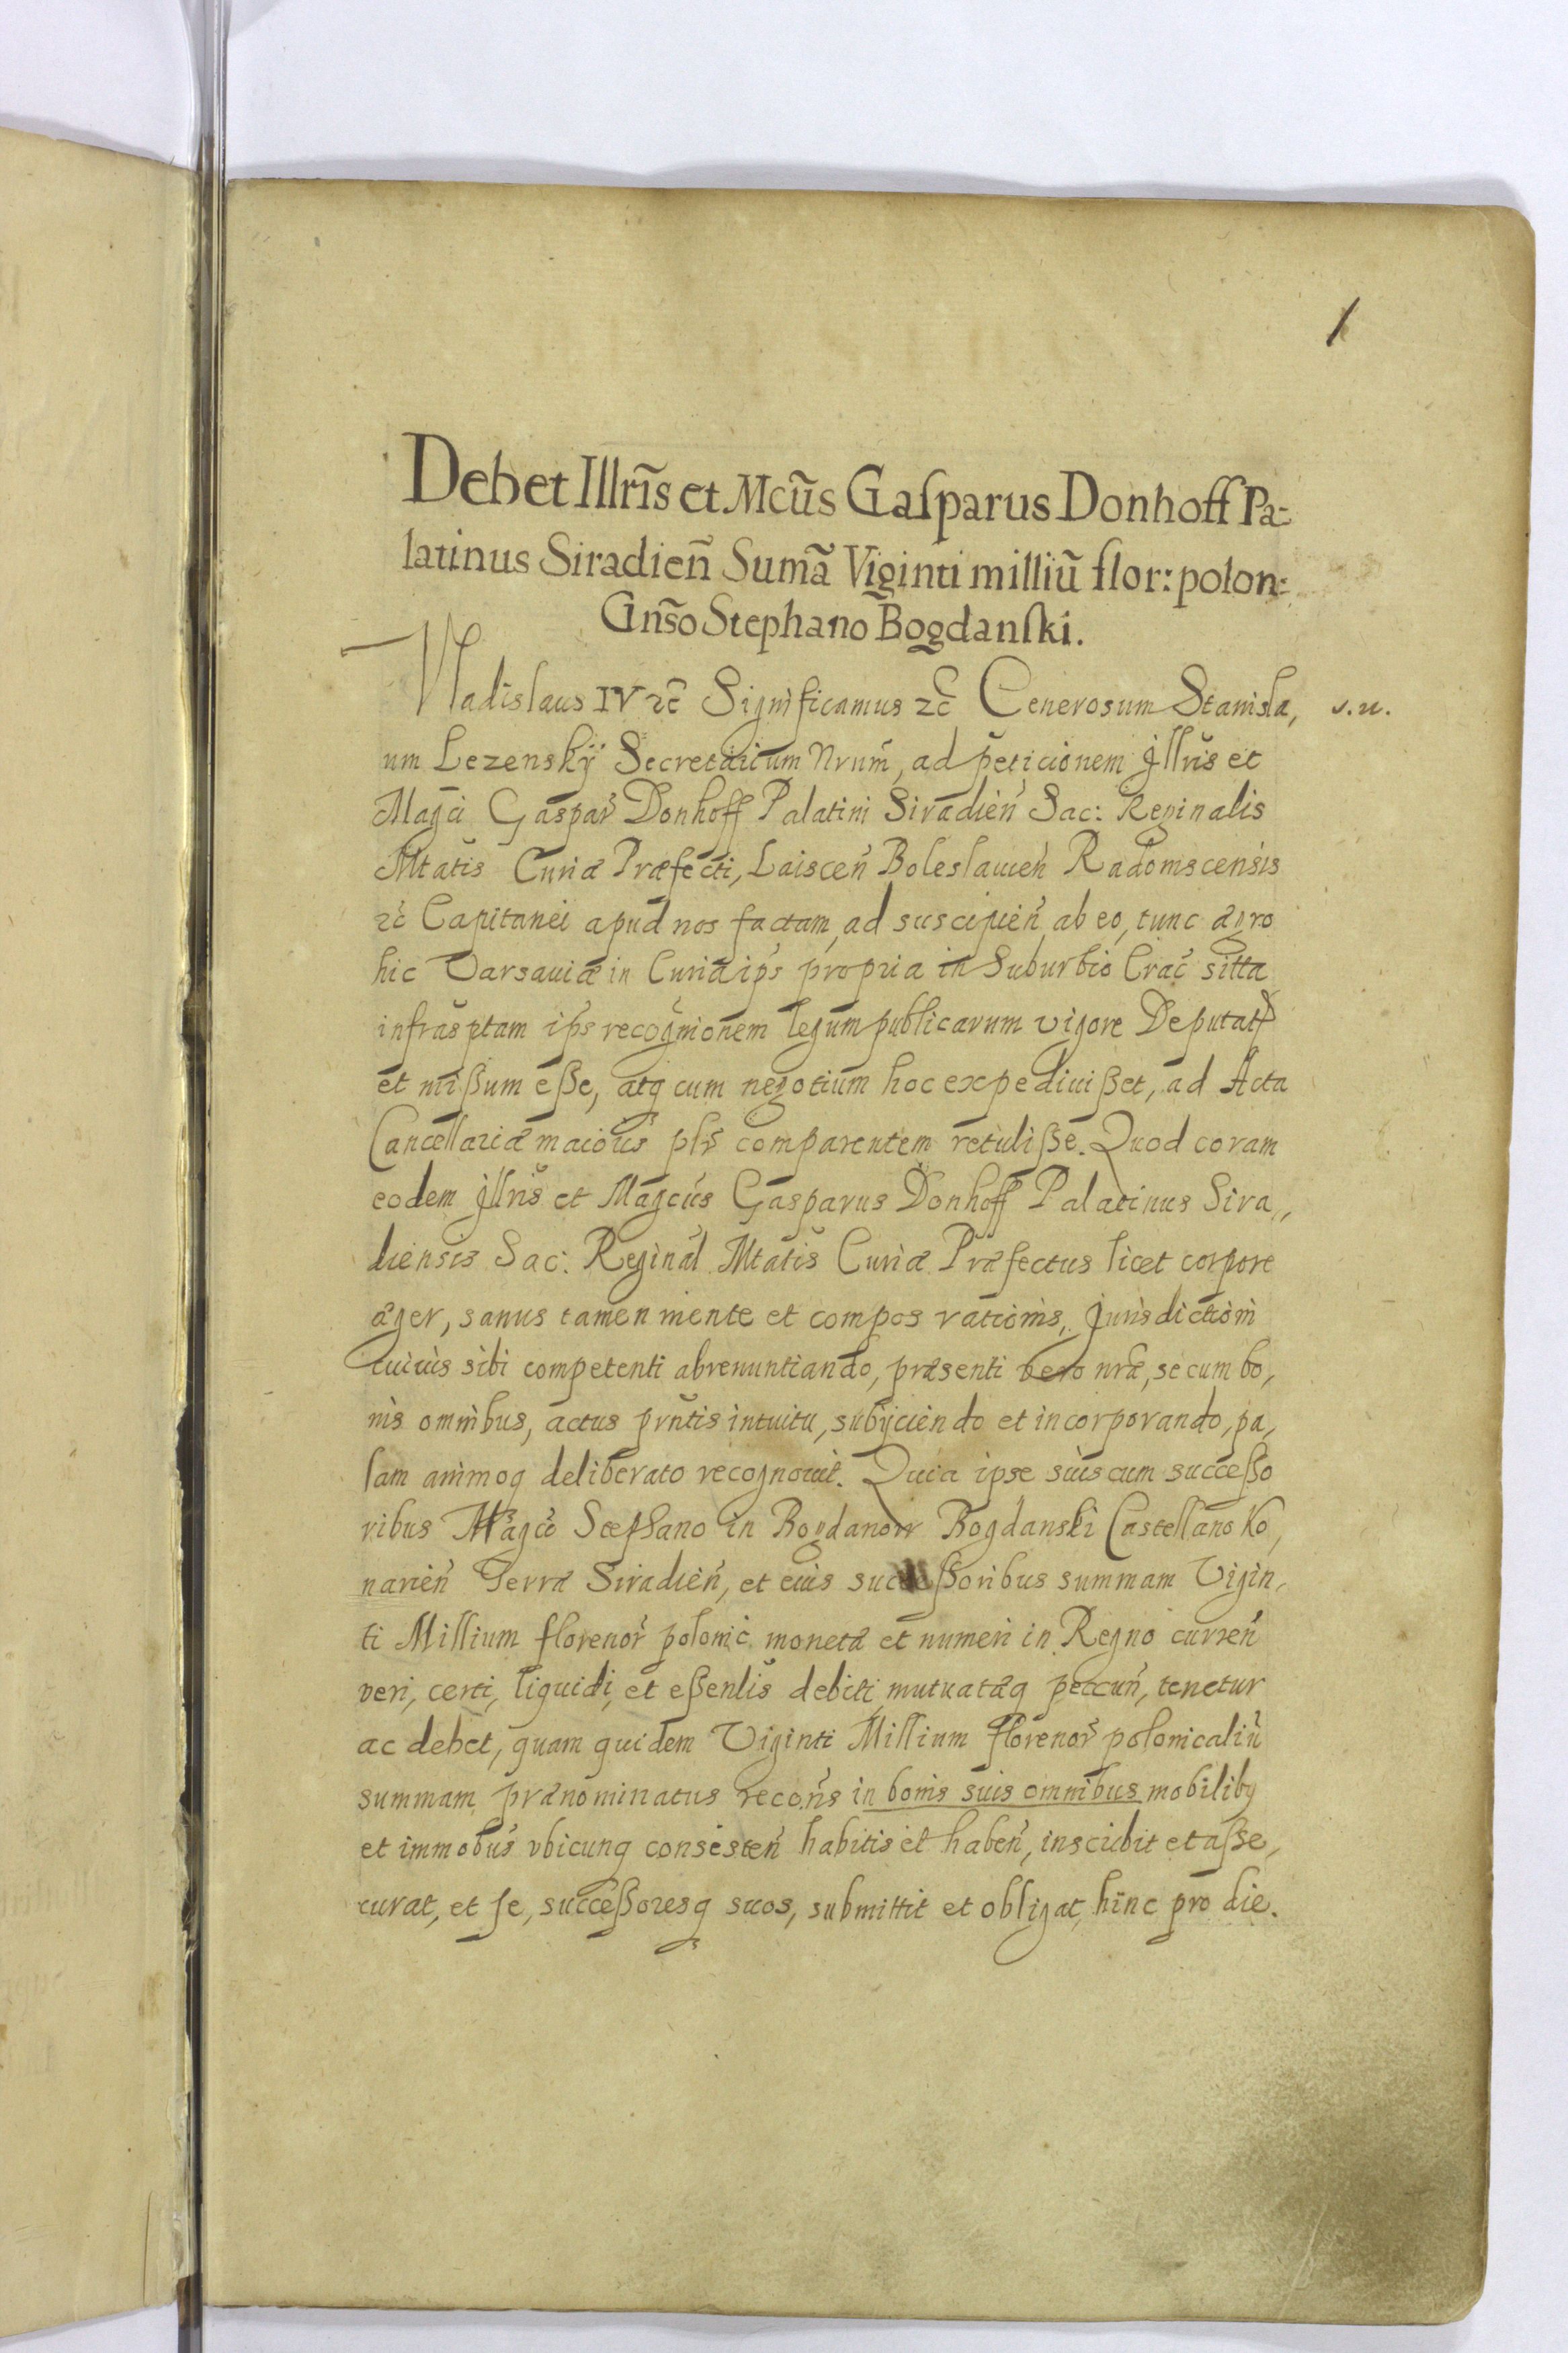 1
Debet Illrīs et Mcūs Gasparus Donhoff Pa-
latinus Siradien̄ Sumā Viginti milliū flor: polon:
Gnso̅ Stephano Bogdanski.
Vladislaus IV zc̄ Significamus zc̄ Generosum Stanisla, v. u.
um Lezenskÿ Secretarium Nrum̄, ad peticionem Jllris et
Magci Gaspar Donhoff Palatini Siradien̄ Sac: Reginalis
Mtatis Curiæ Præfecti, Laiscen̄ Boleslauien̄ Radomscensis
zc̄ Capitanei apud nos factam, ad suscipien̄ ab eo, tunc ægro
hic Varsauiæ in Curia ips̄ propria in Suburbio Crac̄ sitta
infrasptam ips̄ recognionem legum publicarum vigore Deputat
et mißum eße, atq cum negotium hoc expediuißet, ad Acta
Cancellariæ maioris plr̄ comparentem retuliße. Quod coram
eodem Jllris et Magcus Gasparus Donhoff Palatinus Sira,,
diensis Sac: Reginal Mtatis Curiæ Præfectus licet corpore
æger, sanus tamen mente et compos rationis, Jurisdictioni
cuiuis sibi competenti abrenuntiando, præsenti vero nræ, se cum bo,
nis omnibus, actus prn̄tis intuitu, subijciendo et incorporando, pa,
lam animoq deliberato recognouit. Quia ipse suis cum succeßo
ribus Magco Stephano in Bogdanow Bogdanski Castellano Ko,
narien̄ Terræ Siradien̄, et eius succeßoribus summam Vigin,
ti Millium florenor̄ polonic monetæ et numeri in Regno curren̄
veri, certi, liquidi, et eßenlis debiti mutuatæq peccun̄, tenetur
ac debet, quam quidem Viginti Millium florenor̄ polonicaliū
summam prænominatus recon̄s in bonis suis omnibus mobiliby
et immobus̄ vbicunq consisten̄ habitis et haben̄, inscribit et aße,
curat, et se, succeßoresq suos, submittit et obligat, hinc pro die.